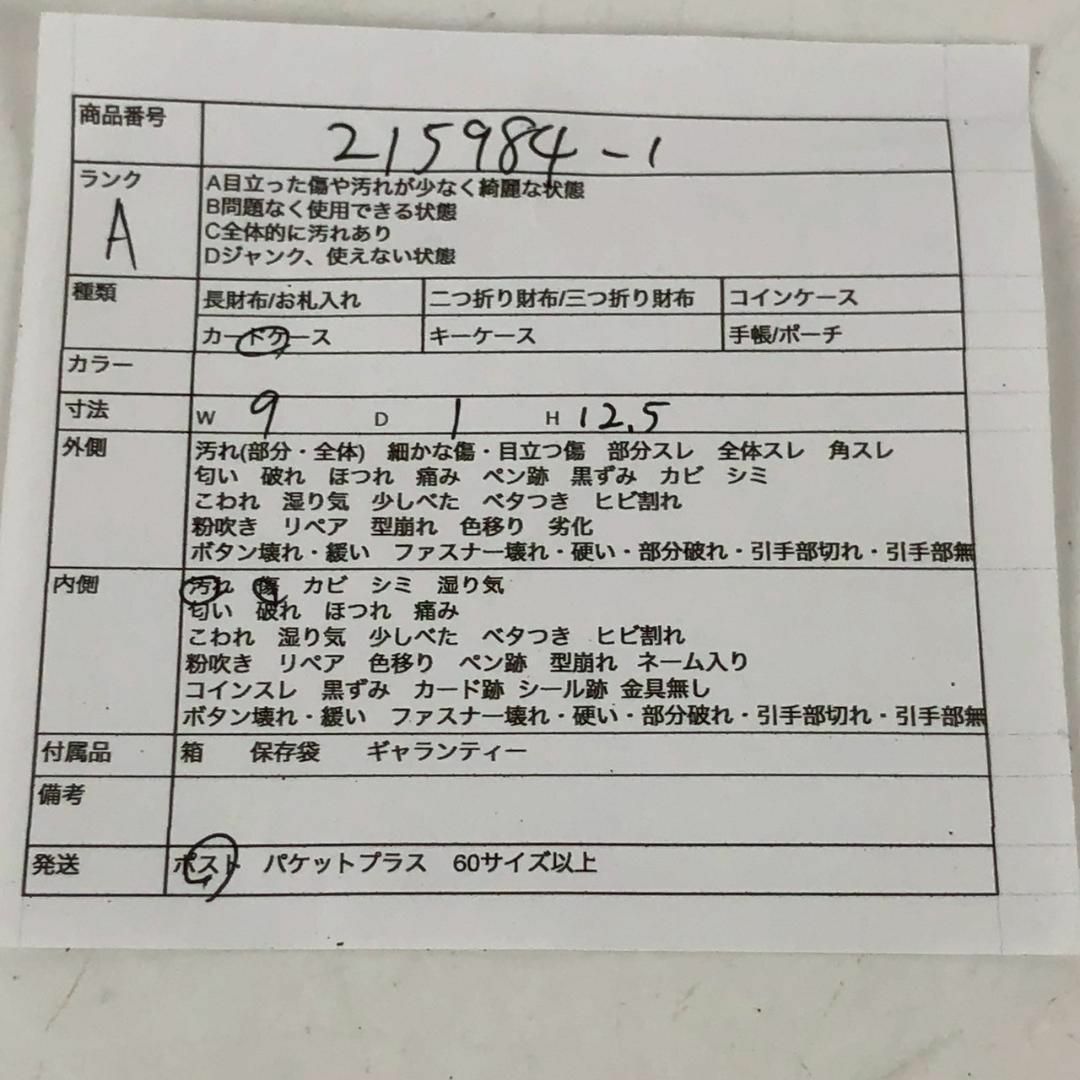 商品番号 215984-1
ランク A A目立った傷や汚れが少なく綺麗な状態
B問題なく使用できる状態
C全体的に汚れあり
Dジャンク、使えない状態
種類 長財布/お札入れ 二つ折り財布/三つ折り財布 コインケース
カードケース キーケース 手帳/ポーチ
カラー
寸法 W 9 D 1 H 12.5
外側 汚れ(部分・全体) 細かな傷・目立つ傷 部分スレ 全体スレ 角スレ
匂い 破れ ほつれ 痛み ペン跡 黒ずみ カビ シミ
こわれ 湿り気 少しべた ベタつき ヒビ割れ
粉吹き リペア 型崩れ 色移り 劣化
ボタン壊れ・緩い ファスナー壊れ・硬い・部分破れ・引手部切れ・引手部無
内側 汚れ 傷 カビ シミ 湿り気
匂い 破れ ほつれ 痛み
こわれ 湿り気 少しべた ベタつき ヒビ割れ
粉吹き リペア 色移り ペン跡 型崩れ ネーム入り
コインスレ 黒ずみ カード跡 シール跡 金具無し
ボタン壊れ・緩い ファスナー壊れ・硬い・部分破れ・引手部切れ・引手部無
付属品 箱 保存袋 ギャランティー
備考
発送 ポスト パケットプラス 60サイズ以上